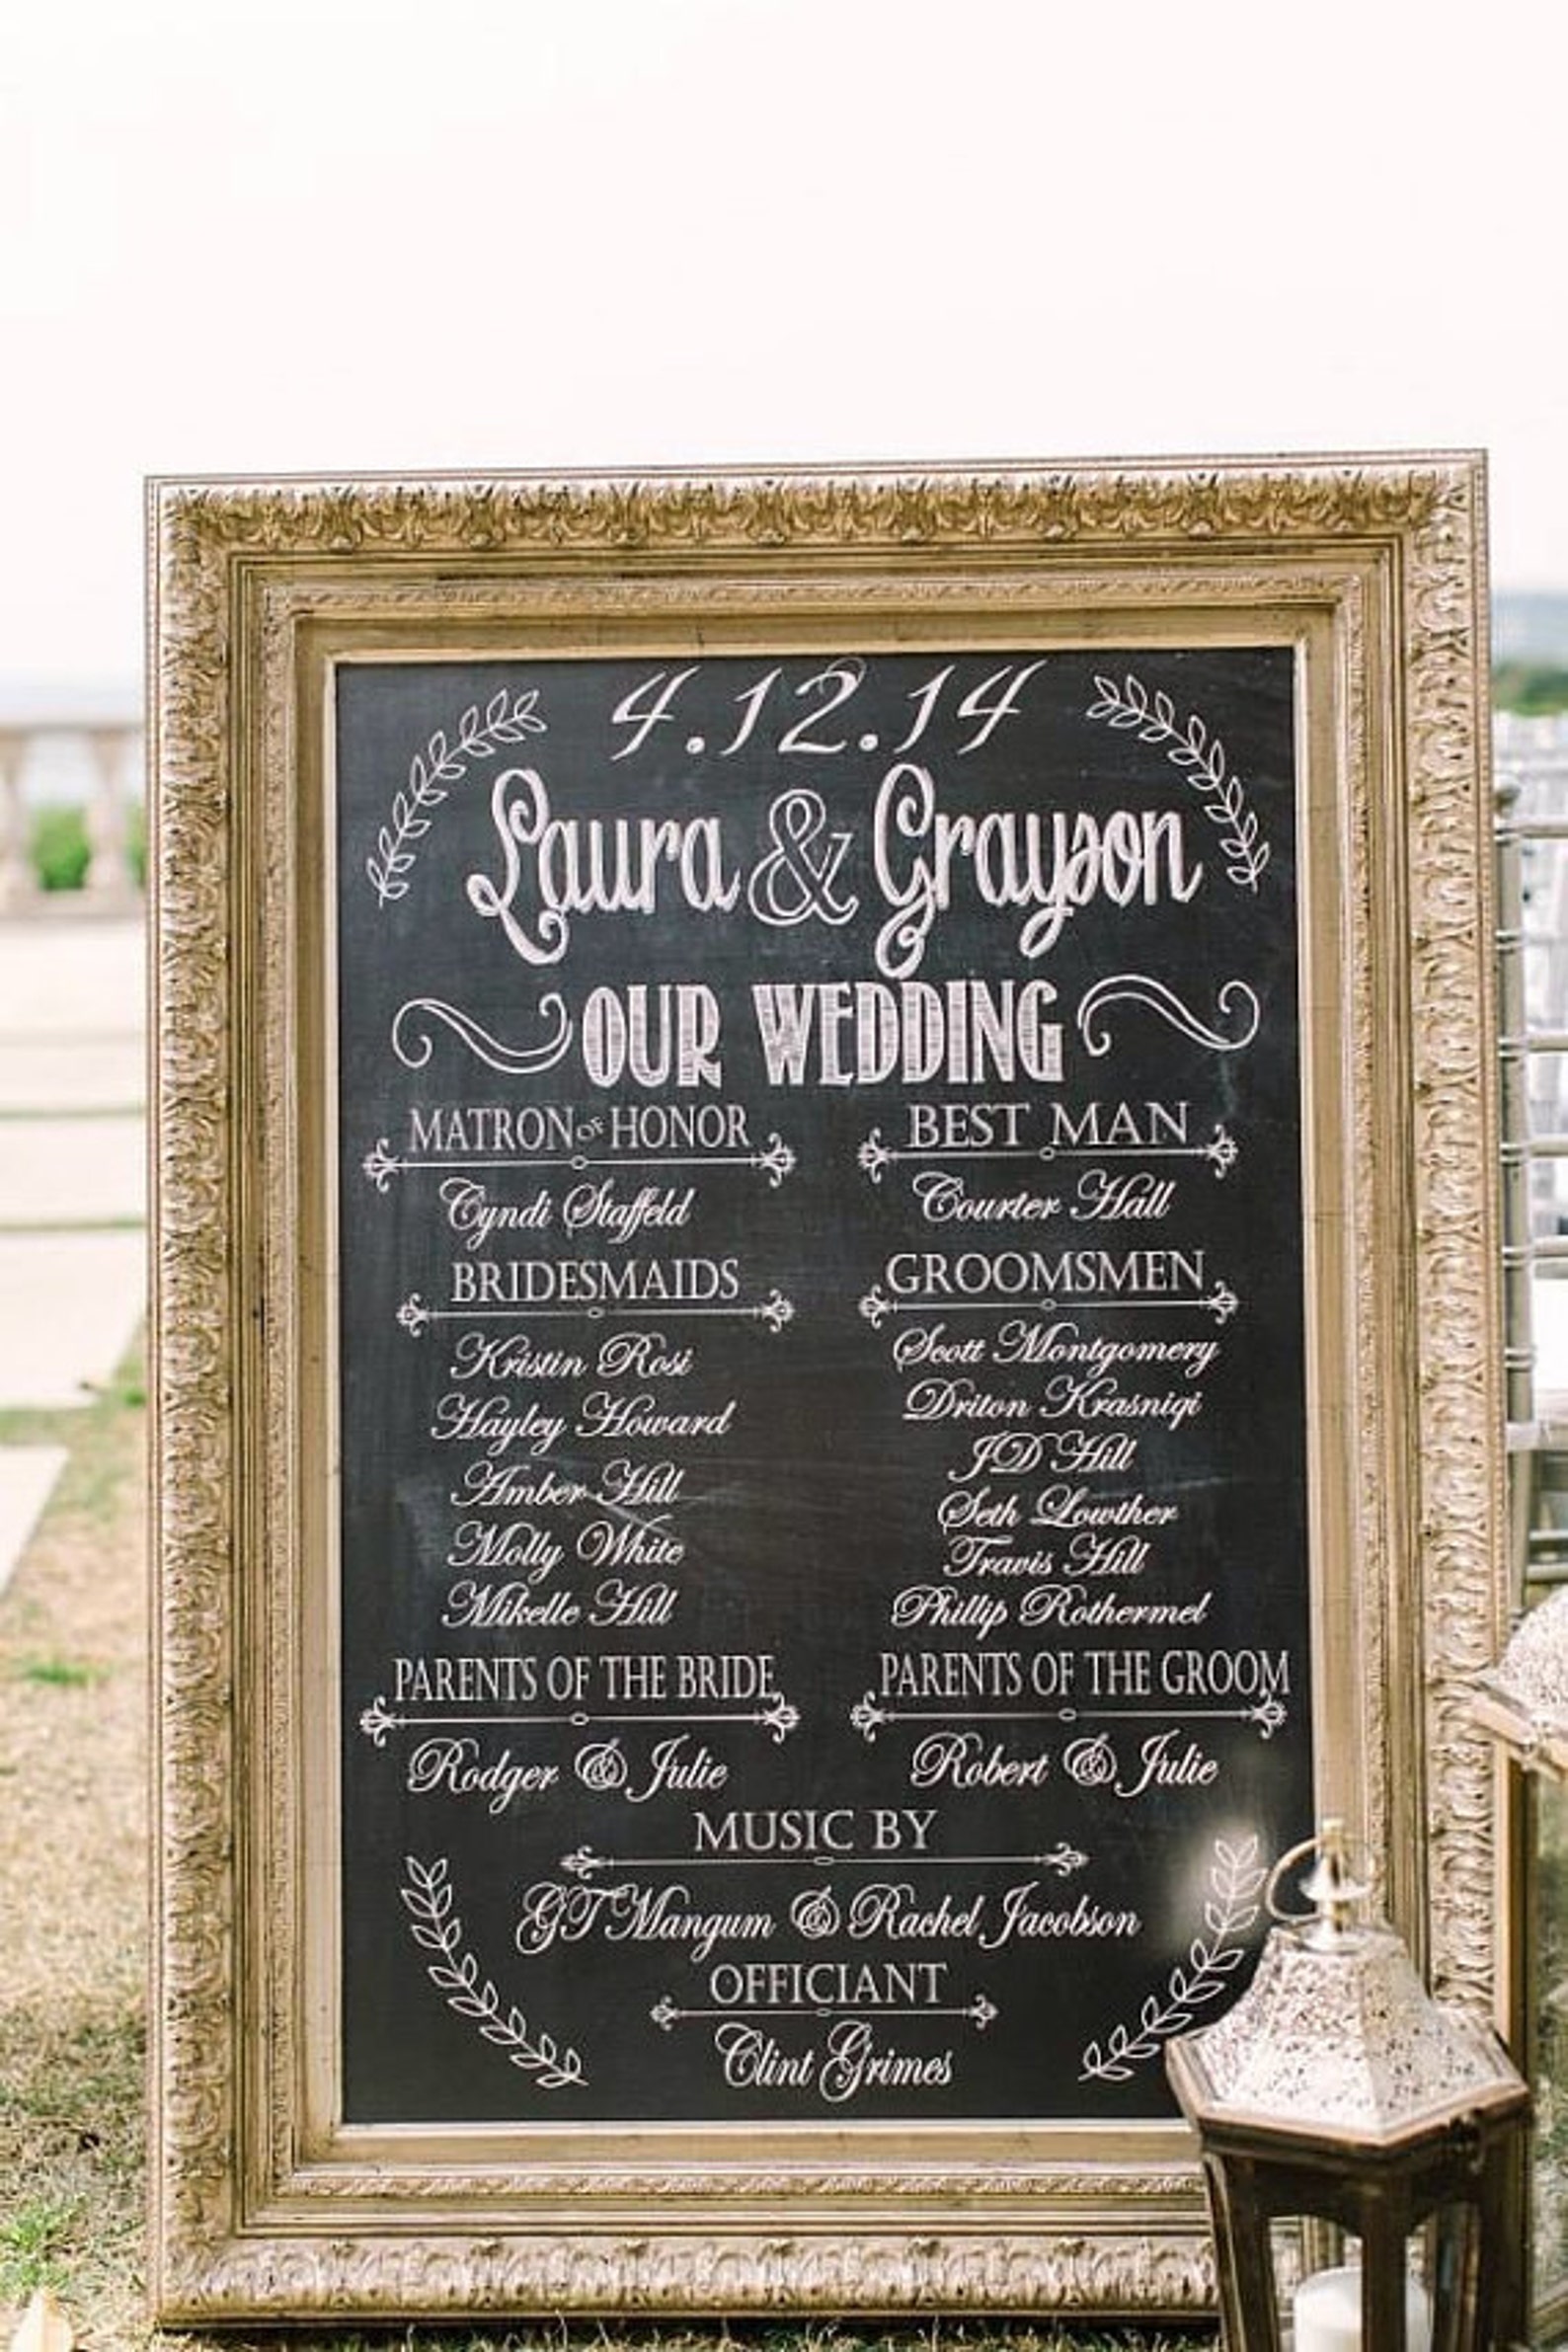 4.12.14
Laura & Grayson
OUR WEDDING
MATRON OF HONOR
Cyndi Staffeld
BRIDESMAIDS
Kristin Rosi
Hayley Howard
Amber Hill
Molly White
Mikelle Hill
PARENTS OF THE BRIDE
Rodger & Julie
BEST MAN
Courter Hall
GROOMSMEN
Scott Montgomery
Driton Krasniqi
JD Hill
Seth Lowther
Travis Hill
Phillip Rothermel
PARENTS OF THE GROOM
Robert & Julie
MUSIC BY
GT Mangum & Rachel Jacobson
OFFICIANT
Clint Grimes